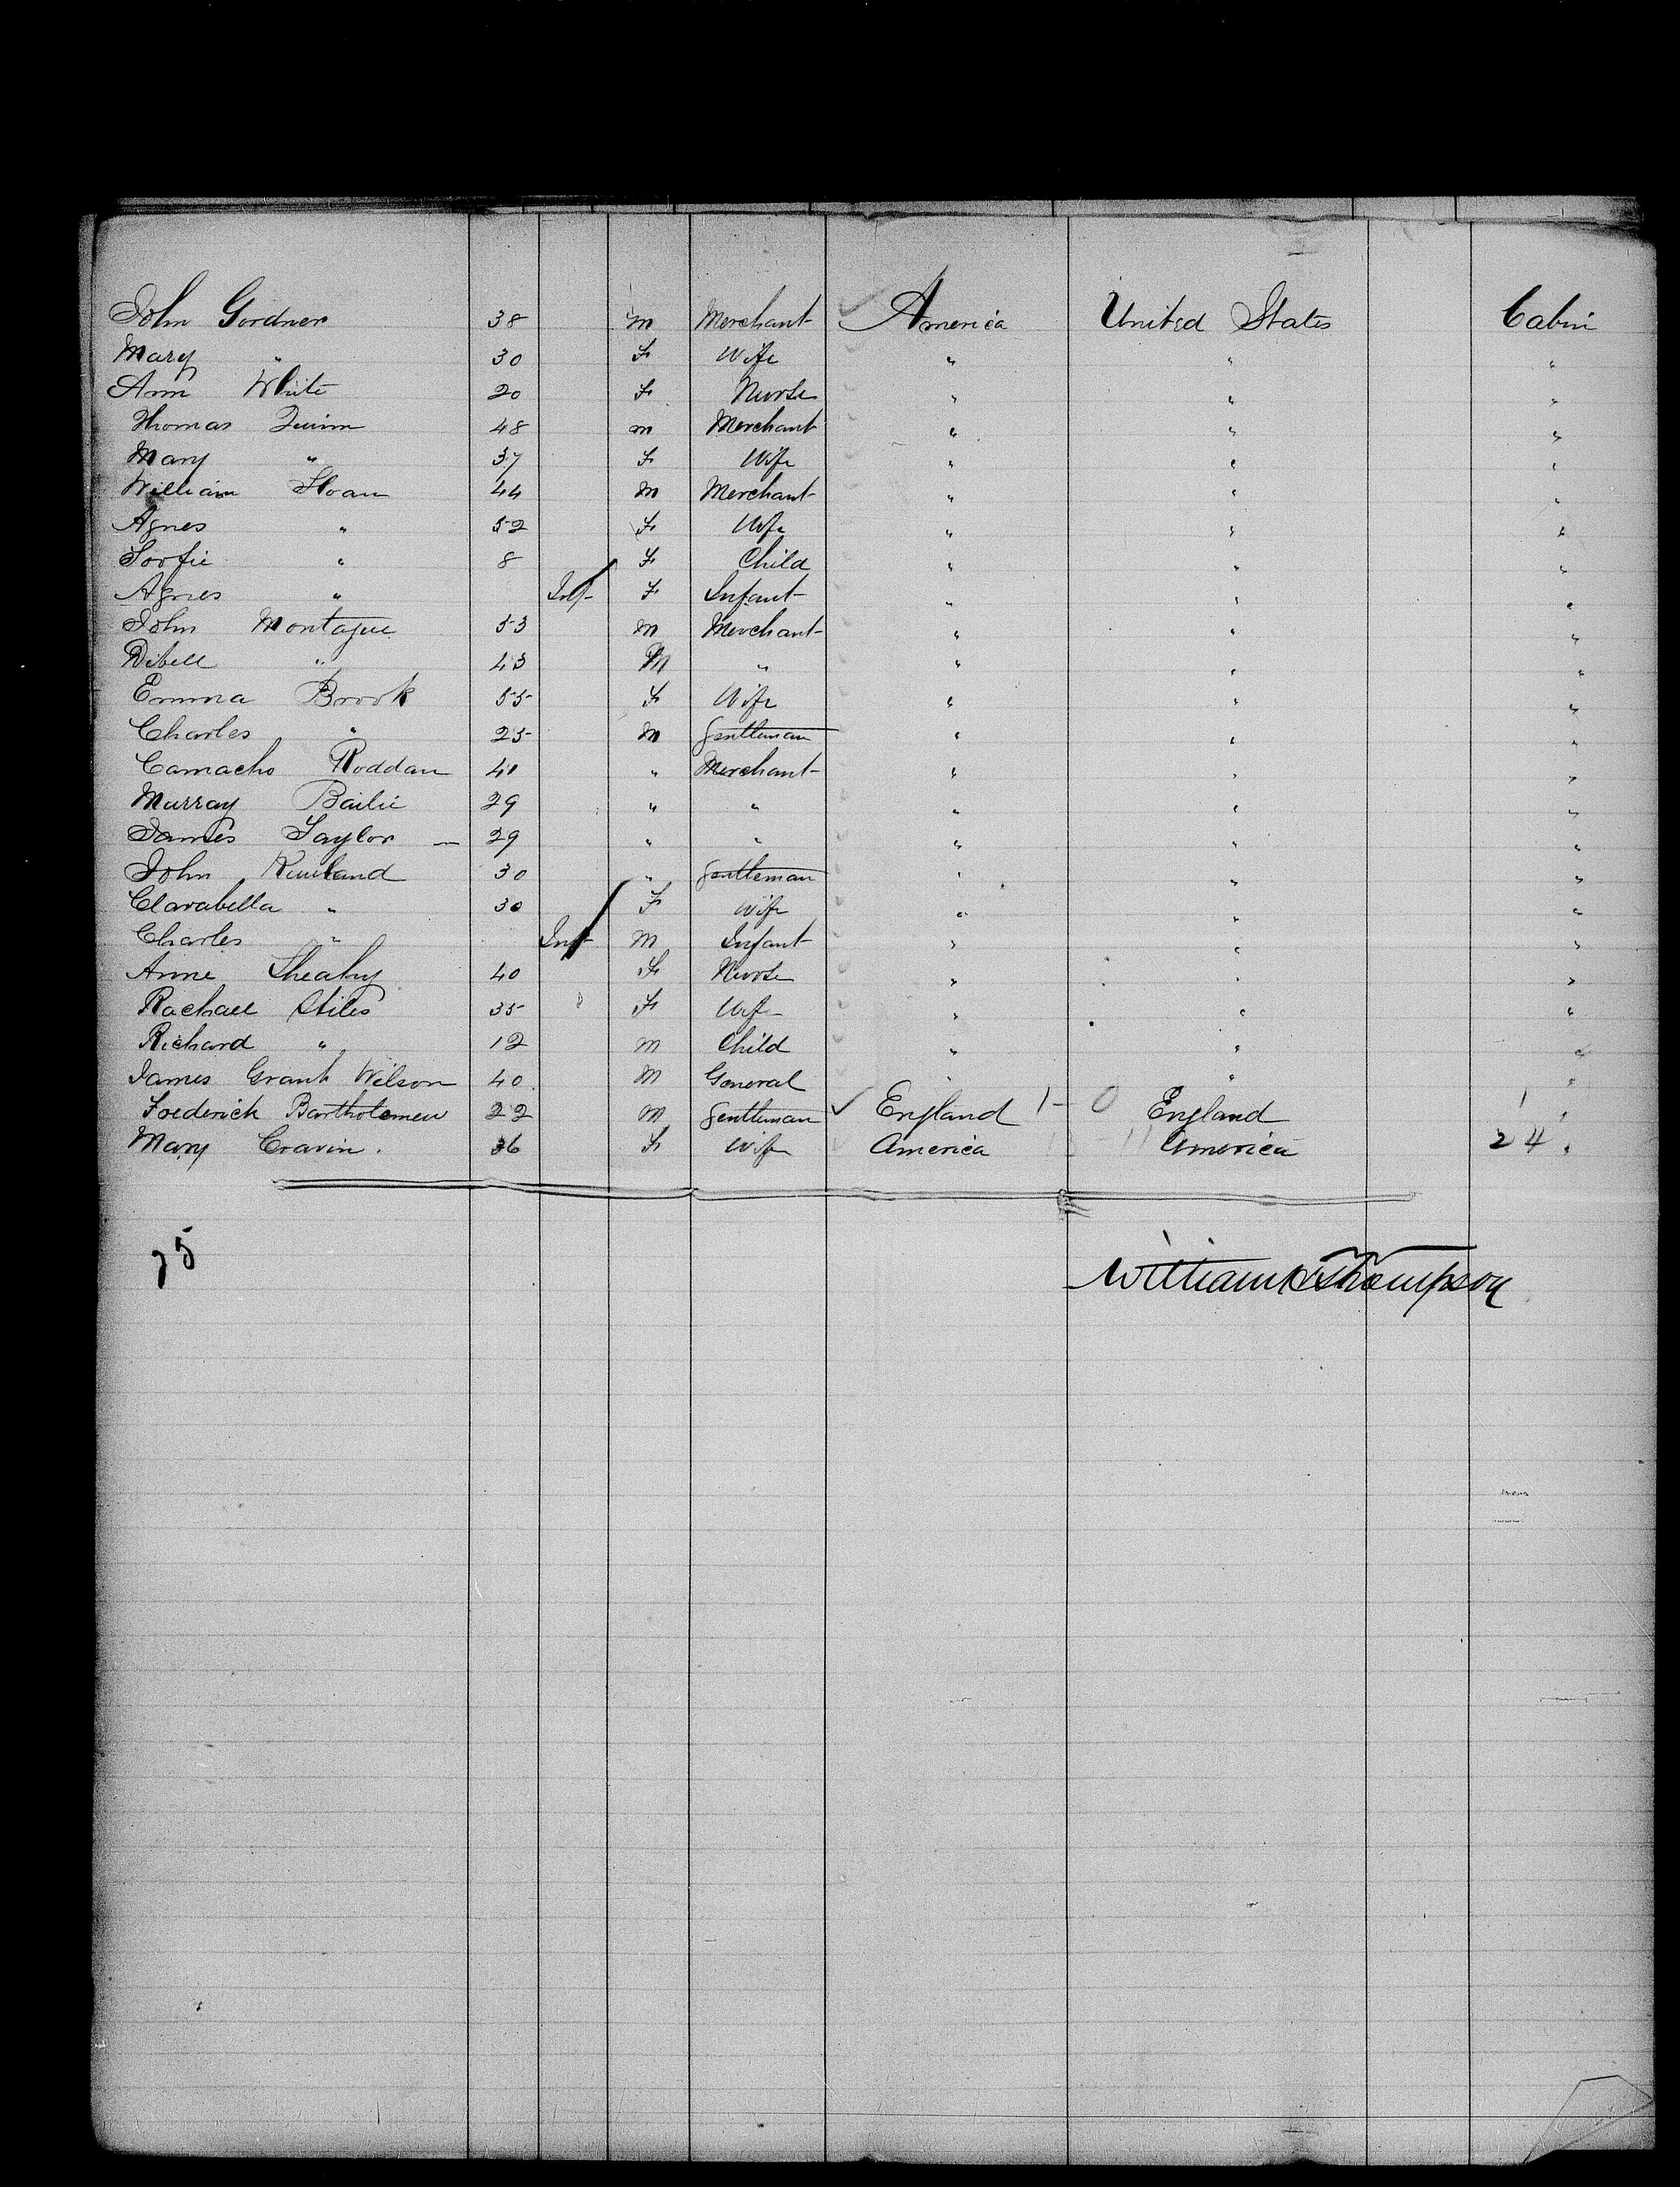 John Gordner 38 m Merchant America United States Cabin
Mary " 30 F Wife " " "
Ann White 20 F Nurse " " "
Thomas Quinn 48 m Merchant " " "
Mary " 37 F Wife " " "
William Sloan 44 m Merchant " " "
Agnes " 52 F Wife " " "
Soofie " 8 F Child " " "
Agnes " Inf F Infant " " "
John Montague 53 m Merchant " " "
" 43 M " " " "
Emma Brook 55 F Wife " " "
Charles " 25 m Gentleman " " "
Camacho Roddan 41 " Merchant " " "
Murray Bailie 29 " " " " "
James Taylor — 29 " " " " "
John 30 " Gentleman " " "
Clarabella " 30 F Wife " " "
Charles " Inf m Infant " " "
Anne Sheahy 40 F Nurse " " "
Rachael Stiles 35 F Wife " " "
Richard " 12 m Child " " "
James Grant Wilson 40 M General " " "
Frederick Bartholemew 22 m Gentleman ✓ England 1 - 0 England 1 "
Mary Cravin. 36 F Wife America America 24 "
75
William Thompson